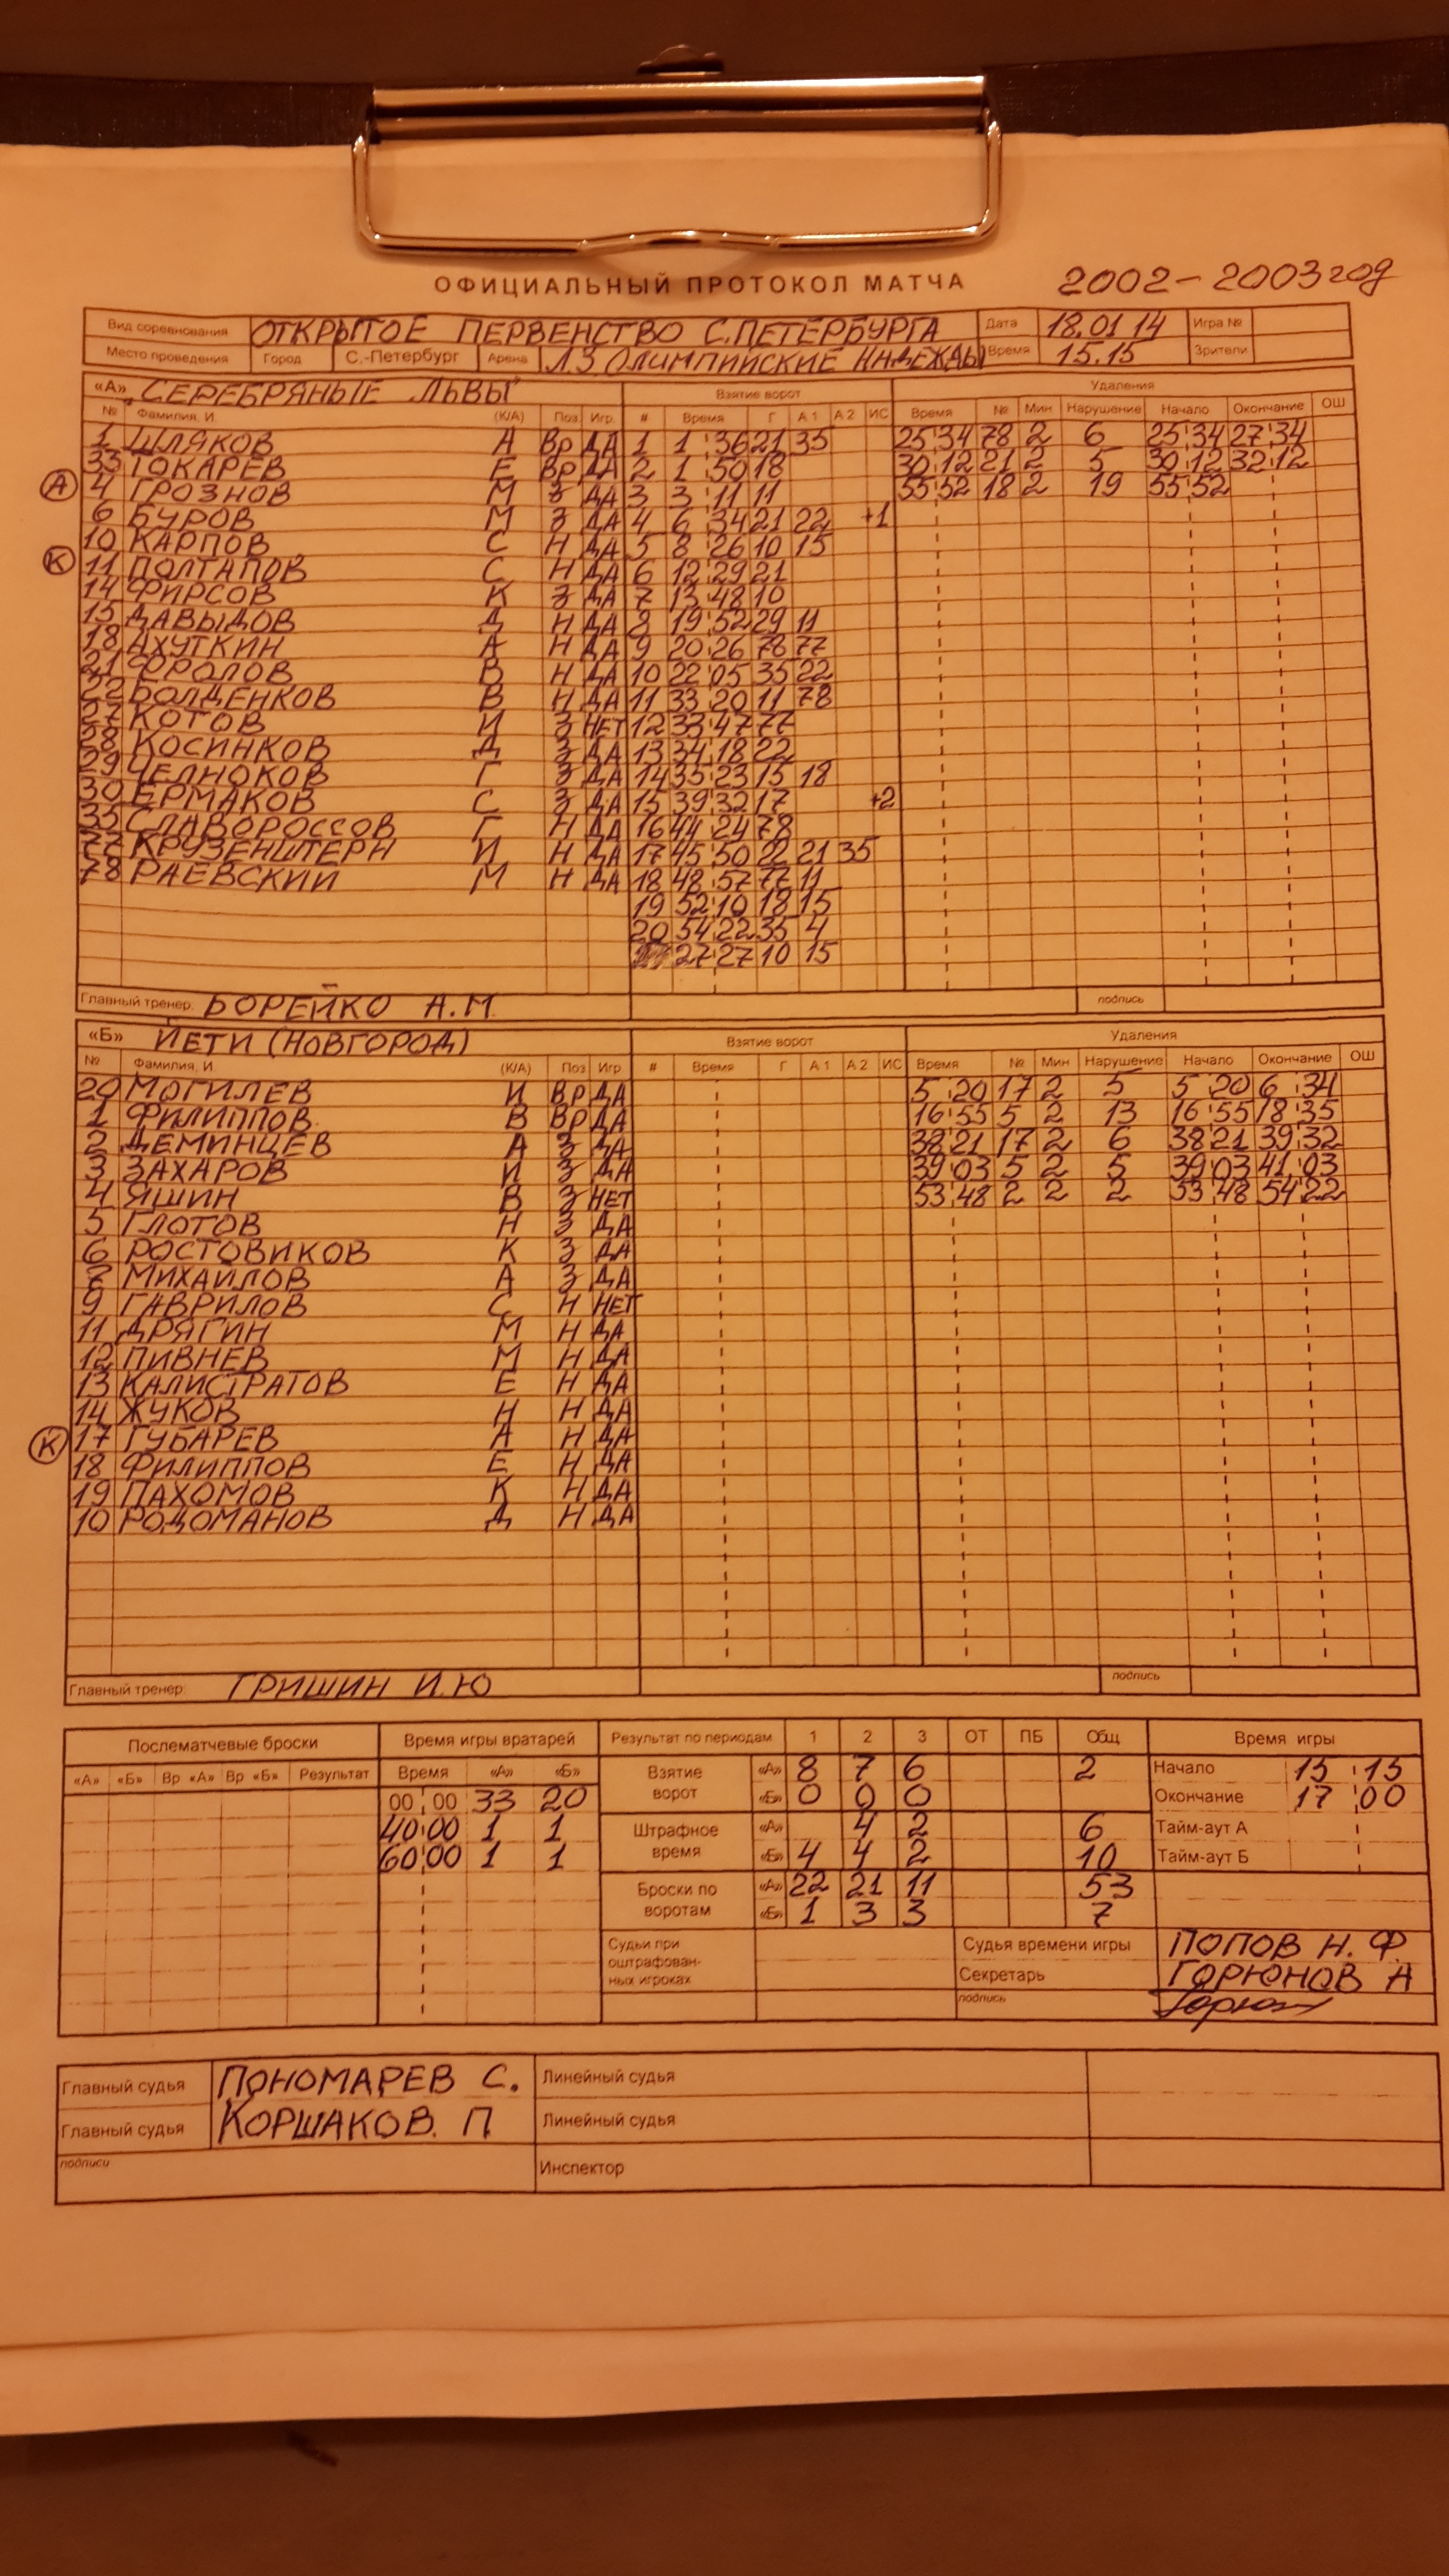 ОФИЦИАЛЬНЫЙ ПРОТОКОЛ МАТЧА 2002-2003 год
Вид соревнования ОТКРЫТОЕ ПЕРВЕНСТВО С.ПЕТЕРБУРГА Дата 18.01 14 Игра №
Место проведения Город С.-Петербург Арена Л.З ОЛИМПИЙСКИЕ НАДЕЖДЫ Время 15.15 Зрители
«А» "СЕРЕБРЯНЫЕ ЛЬВЫ" Взятие ворот Удаления
№ Фамилия, И. (К/А) Поз Игр. # Время Г А1 А2 ИС Время № Мин Нарушение Начало Окончание ОШ
1 ШЛЯКОВ А Вр ДА 1 1 36 21 35 25 34 78 2 6 25 34 27 34
33 ТОКАРЕВ Е Вр ДА 2 1 50 18 30 12 21 2 5 30 12 32 12
А 4 ГРОЗНОВ М З ДА 3 3 11 11 55 52 18 2 19 55 52
6 БУРОВ М З ДА 4 6 34 21 22 +1
10 КАРПОВ С Н ДА 5 8 26 10 15
К 11 ПОЛТАПОВ С Н ДА 6 12 29 21
14 ФИРСОВ К З ДА 7 13 48 10
15 ДАВЫДОВ Д Н ДА 8 19 52 29 11
18 АХУТКИН А Н ДА 9 20 26 78 77
21 ФРОЛОВ В Н ДА 10 22 05 35 22
22 БОЛДЕНКОВ В Н ДА 11 33 20 11 78
27 КОТОВ И З НЕТ 12 33 47 77
28 КОСИНКОВ Д З ДА 13 34 18 22
29 ЧЕЛНОКОВ Г З ДА 14 35 23 15 18
30 ЕРМАКОВ С З ДА 15 39 32 17 +2
35 СЛАВОРОССОВ Г Н ДА 16 44 24 78
77 КРУЗЕНШТЕРН И Н ДА 17 45 50 22 21 35
78 РАЕВСКИЙ М Н ДА 18 48 57 77 11
19 52 10 18 15
20 54 22 35 4
27 27 10 15
Главный тренер: БОРЕЙКО А.М. подпись
«Б» ЙЕТИ (НОВГОРОД) Взятие ворот Удаления
№ Фамилия, И (К/А) Поз Игр # Время Г А1 А2 ИС Время № Мин Нарушение Начало Окончание ОШ
20 МОГИЛЕВ И Вр ДА 5 20 17 2 5 5 20 6 34
1 ФИЛИППОВ В Вр ДА 16 55 5 2 13 16 55 18 35
2 ДЕМИНЦЕВ А З ДА 38 21 17 2 6 38 21 39 32
3 ЗАХАРОВ И З ДА 39 03 5 2 5 39 03 41 03
4 ЯШИН В З НЕТ 53 48 2 2 2 53 48 54 22
5 ГЛОТОВ Н З ДА
6 РОСТОВИКОВ К З ДА
МИХАЙЛОВ А З ДА
9 ГАВРИЛОВ С Н НЕТ
11 ДРЯГИН М Н ДА
12 ПИВНЕВ М Н ДА
13 КАЛИСТРАТОВ Е Н ДА
14 ЖУКОВ Н Н ДА
К 17 ГУБАРЕВ А Н ДА
18 ФИЛИППОВ Е Н ДА
19 ПАХОМОВ К Н ДА
10 РОДОМАНОВ Д Н ДА
Главный тренер: ГРИШИН И.Ю подпись
Послематчевые броски Время игры вратарей Результат по периодам 1 2 3 ОТ ПБ Общ Время игры
«А» «Б» Вр «А» Вр «Б» Результат Время «А» «Б» Взятие ворот «А» 8 7 6 2 Начало 15 15
00 00 33 20 «Б» 0 0 0 Окончание 17 00
40 00 1 1 Штрафное время «А» 4 2 6 Тайм-аут А
60 00 1 1 «Б» 4 4 2 10 Тайм-аут Б
Броски по воротам «А» 22 21 11 53
«Б» 1 3 3 7
Судьи при оштрафованных игроках Судья времени игры ПОПОВ Н. Ф.
Секретарь ГОРЮНОВ А
подпись
Главный судья ПОНОМАРЕВ С. Линейный судья
Главный судья КОРШАКОВ. П. Линейный судья
подписи Инспектор